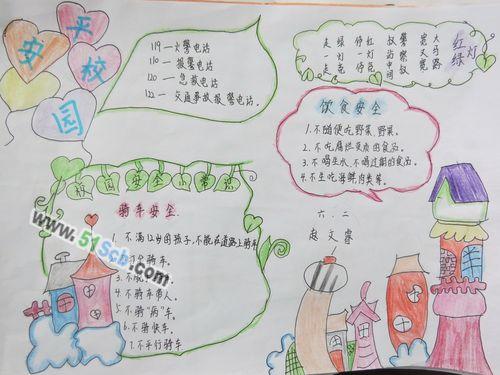 平安校园
119—火警电话
110—报警电话
120—急救电话
122—交通事故报警电话。
红绿灯
大马路
宽又宽
警察叔
叔站中间
红灯亮
停一停
绿灯亮
走一走
饮食安全
1.不随便吃野菜、野菜。
2.不吃腐烂变质的食品。
3.不喝生水、不喝过期的食品。
4.不生吃海鲜、肉类等。
六.二
校园安全小常识
骑车安全.
1.不满12岁的孩子,不能在道路上骑车
骑车。
3.不
4.不骑车带人。
5.不骑“病”车。
6.不骑快车。
7.不平行骑车
www.51Scb.com